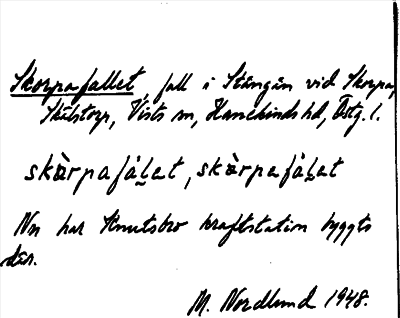 Skorpafallet, fall i Stångån vid Skorpa,
Skälstorp, Vists sn, Hanekinds hd, Östg. l.
skàrpafàl̬et, skàrpafàl̬et
Nu har Knutsbro kraftstation byggts
där.
M. Nordlund 1948.